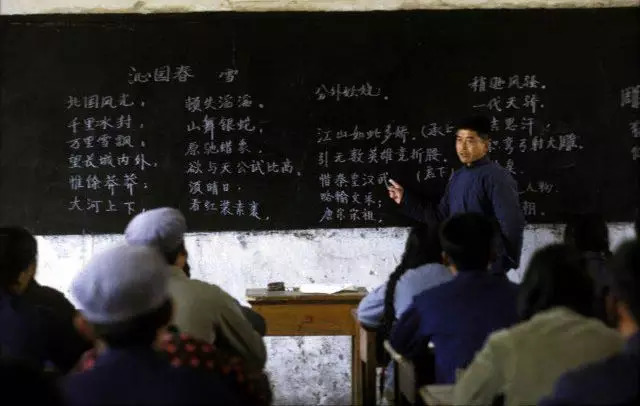 沁园春 雪
北国风光，
千里冰封，
万里雪飘。
望长城内外，
惟馀莽莽；
大河上下，
顿失滔滔。
山舞银蛇，
原驰蜡象，
欲与天公试比高。
须晴日，
看红装素裹，
分外妖娆。
江山如此多娇，（承上
引无数英雄竞折腰。
惜秦皇汉武，（启下
略输文采，
唐宗宋祖，
稍逊风骚。
一代天骄，
吉思汗，
弯弓射大雕
人物，
朝。
雕